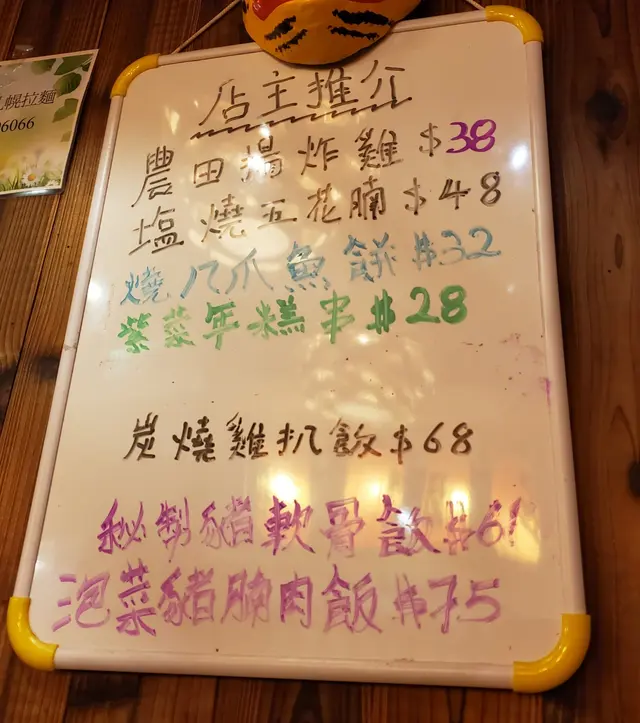 幌拉麵
6066
店主推介
農田揚炸雞 $38
塩燒五花腩 $48
燒八爪魚餅 $32
紫菜年糕串 $28
炭燒雞扒飯 $68
秘制豬軟骨飯 $61
泡菜豬腩肉飯 $75